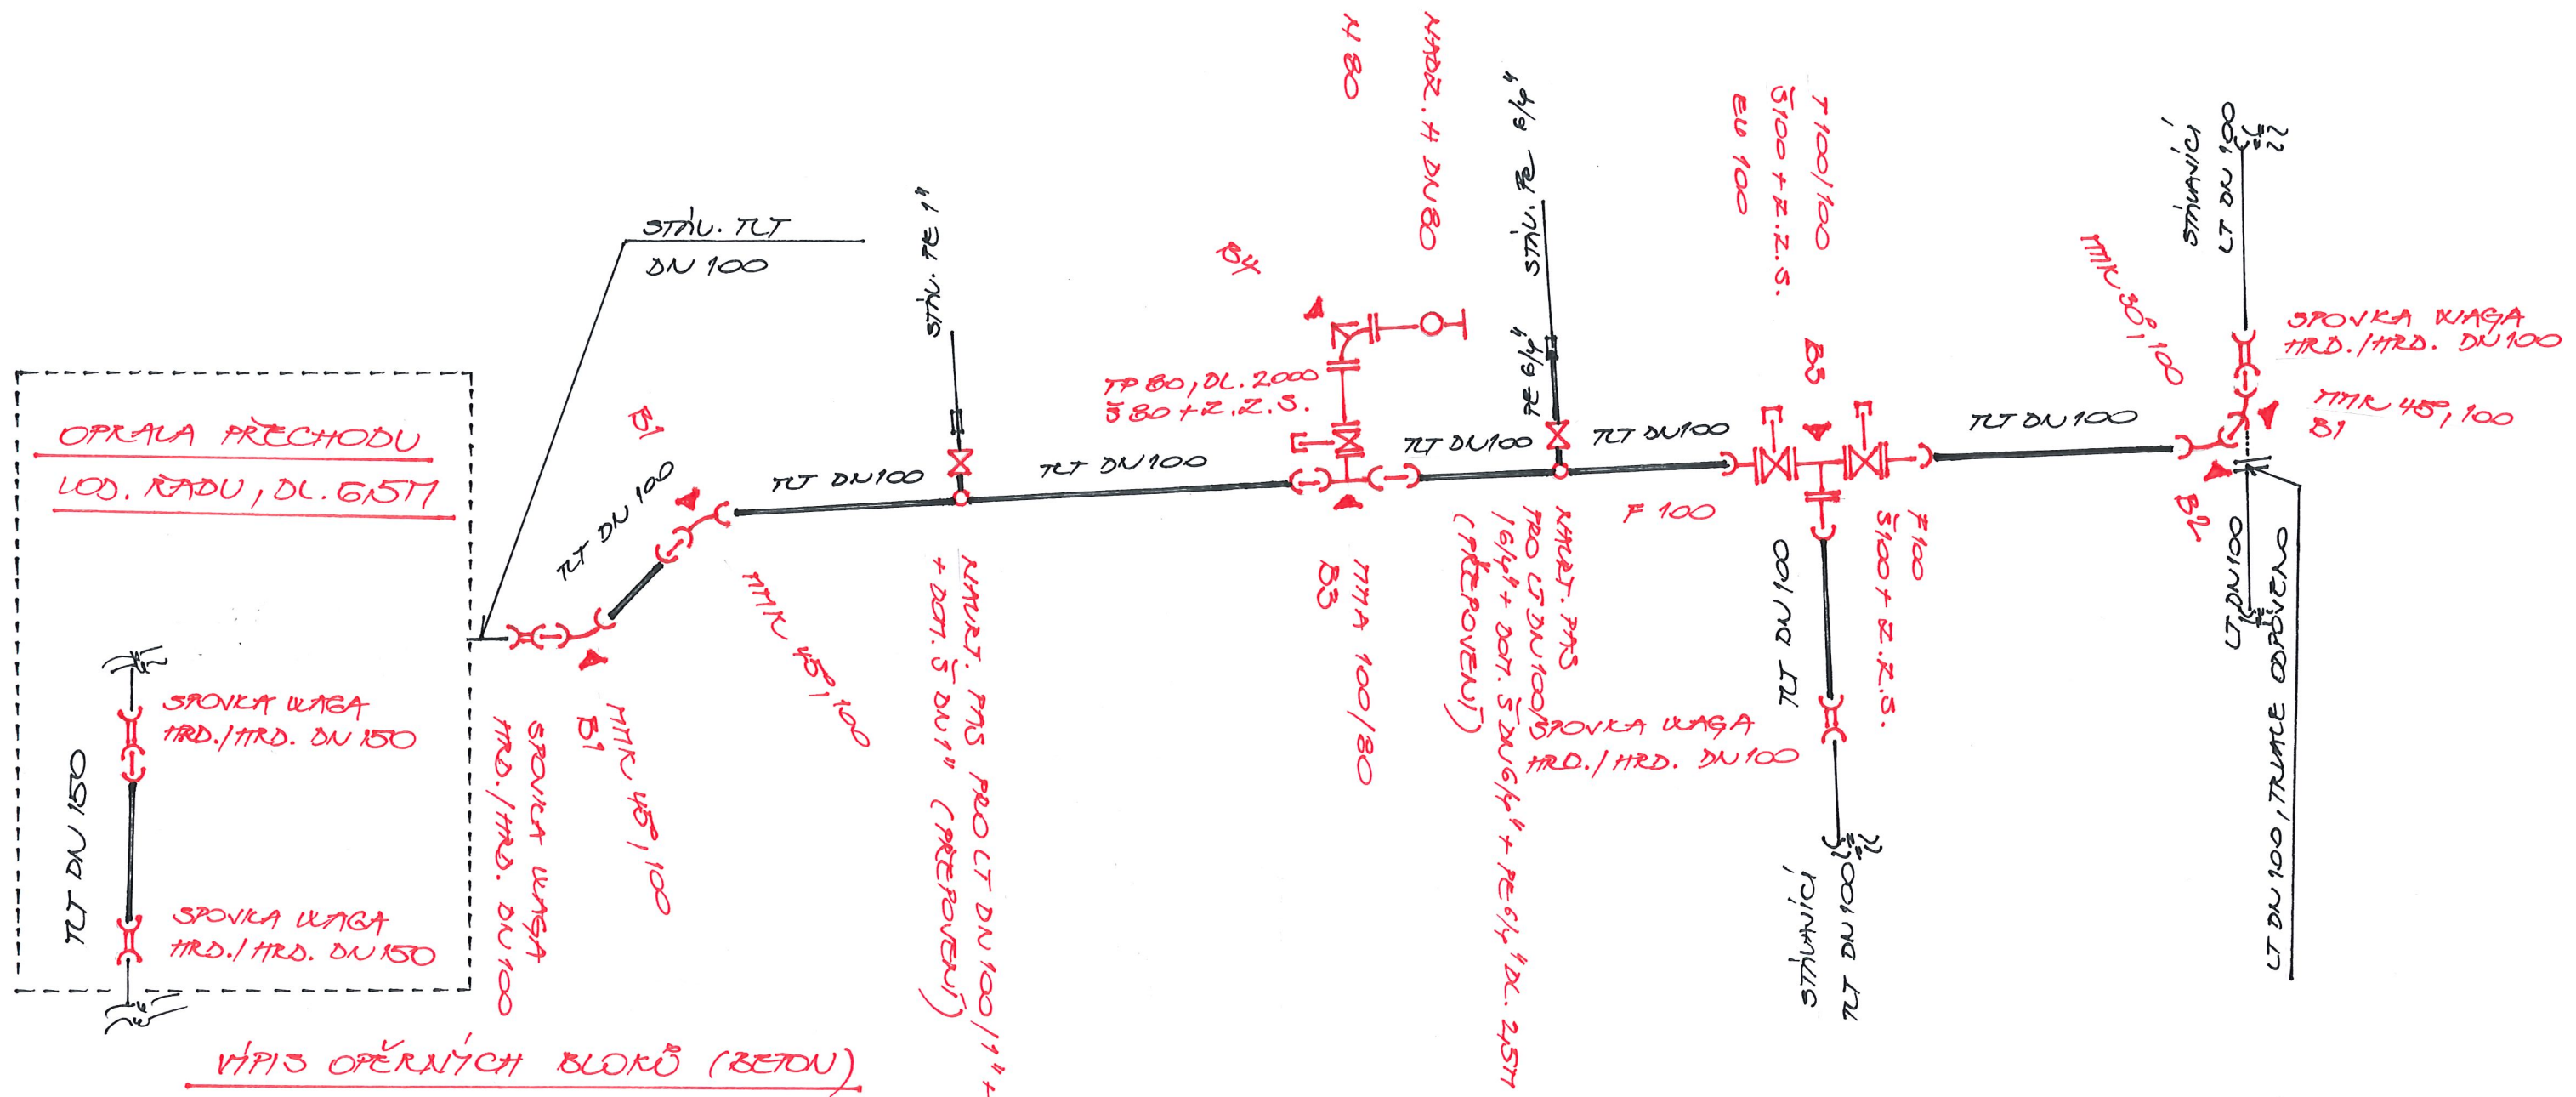 OPRAVA PŘECHODU
VOD. ŘADU, DL. 6,5M
TLT DN 150
SPOJKA WAGA
HRD./HRD. DN 150
SPOJKA WAGA
HRD./HRD. DN 150
VÝPIS OPĚRNÝCH BLOKŮ (BETON)
STÁV. TLT
DN 100
SPOJKA WAGA
HRD./HRD. DN 100
MMK 45°, 100
B1
TLT DN 100
B1
MMK 45°, 100
TLT DN 100
STÁV. PE 1"
NAVRT. PAS PRO LT DN 100/1" +
+ DOM. Š DN 1" (PŘEPOJENÍ)
TLT DN 100
TP 80, DL. 2000
Š 80 + Z.Z.S.
B4
N 80
NADZ. H DN 80
MMA 100/80
B3
TLT DN 100
STÁV. PE 6/4"
PE 6/4"
NAVRT. PAS
PRO LT DN 100/
/6/4" + DOM. Š DN 6/4" + PE 6/4" DL. 2,5M
(PŘEPOJENÍ)
TLT DN 100
F 100
T 100/100
Š 100 + Z.Z.S.
EU 100
B3
F 100
Š 100 + Z.Z.S.
TLT DN 100
SPOJKA WAGA
HRD./HRD. DN 100
STÁVAJÍCÍ
TLT DN 100
TLT DN 100
MMK 30°, 100
B2
STÁVAJÍCÍ
LT DN 100
SPOJKA WAGA
HRD./HRD. DN 100
MMK 45°, 100
B1
LT DN 100
LT DN 100, TRVALE ODPOJENO